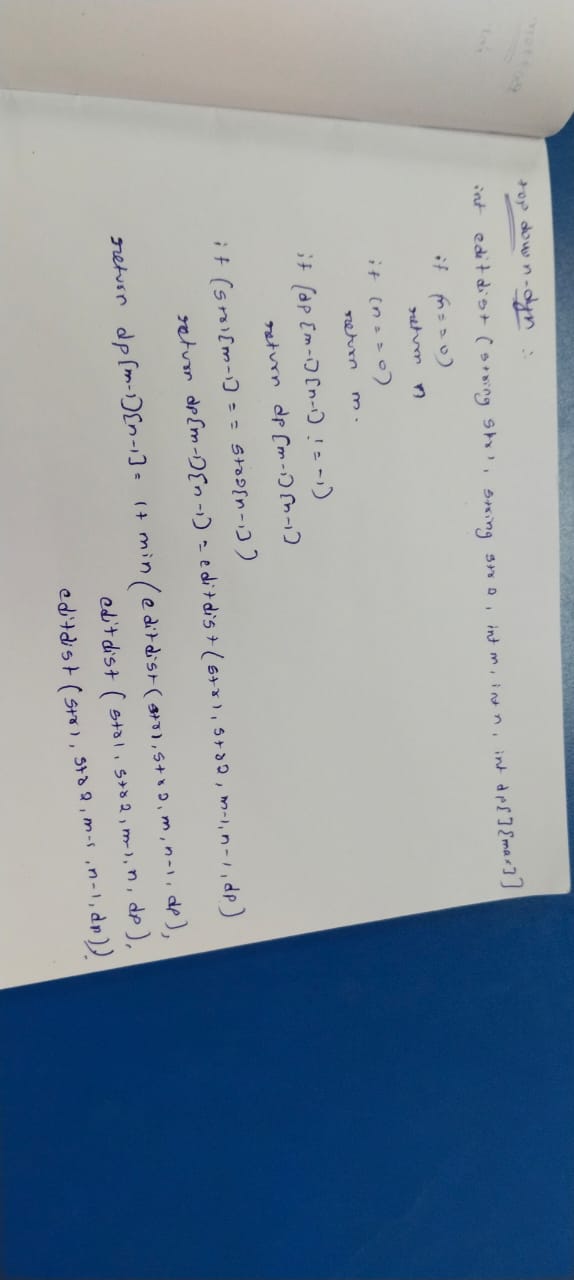 top down-dyn :
int editdist (string str1, string str2, int m, int n, int dp[][max]]
if (m==0)
return n
if (n==0)
return m.
if (dp[m-1][n-1] != -1)
return dp[m-1][n-1]
if (str1[m-1] == str2[n-1])
return dp[m-1][n-1] = editdist(str1, str2, m-1, n-1, dp)
return dp[m-1][n-1] = 1+ min(editdist(str1, str2, m, n-1, dp),
editdist(str1, str2, m-1, n, dp),
editdist(str1, str2, m-1, n-1, dp)).